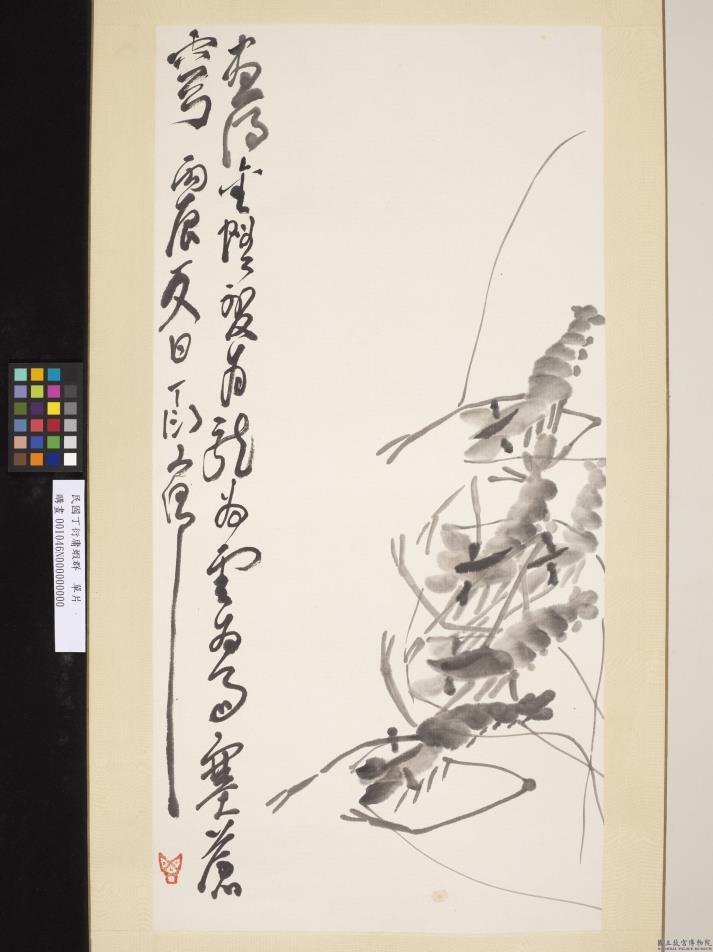 畫得龍為雲為雨塞蒼
穹 丙辰夏日丁衍庸
民國丁衍庸蝦群 單片
購畫 001046N000000000
國立故宮博物院
NATIONAL PALACE MUSEUM